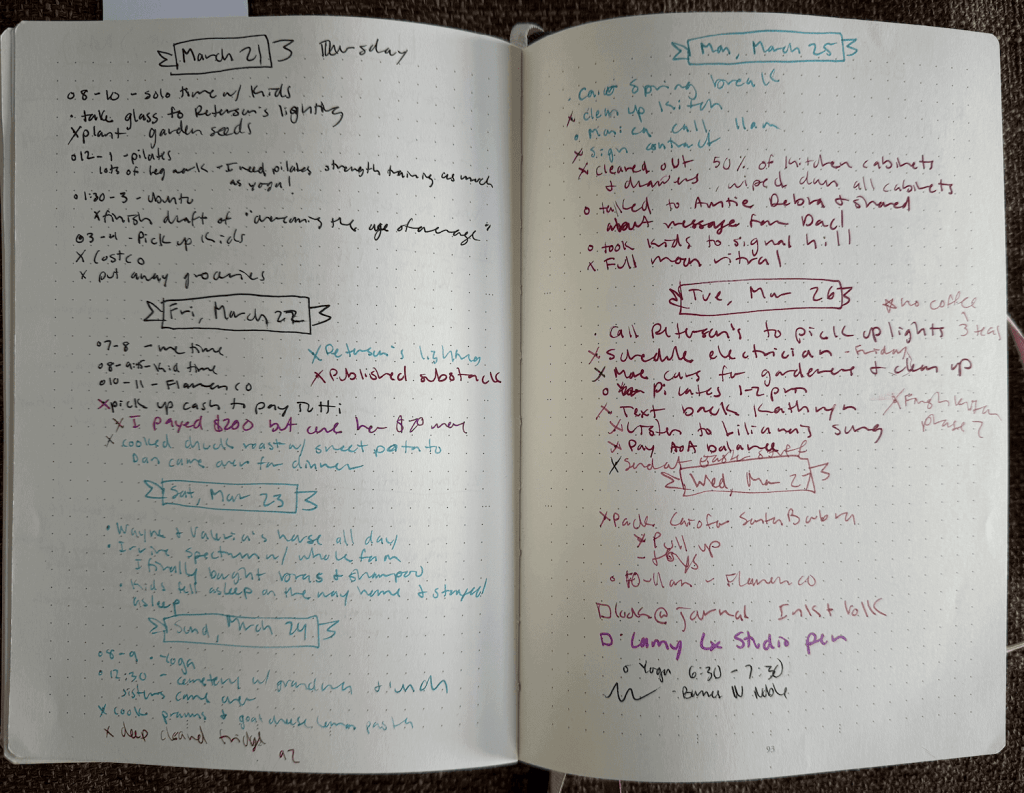 March 21 Thursday
o 8-10 - solo time w/ kids
· take glass to Peterson's lighting
x plant garden seeds
o 12-1 - pilates
lots of leg work - I need pilates strength training as much
as yoga!
o 1:30-3 -
x finish draft of "overcoming the age of average"
o 3-4 - Pick up kids
x Costco
x put away groceries
Fri, March 22
o 7-8 - me time
o 8-9:5 - kid time
o 10-11 - Flamenco
x Peterson's lighting
x Published substack
x pick up cash to pay Tutti
x I payed $200 but owe her $70 more
x cooked chuck roast w/ sweet potato
Dan came over for dinner
Sat, Mar 23
· Wayne & Valeria's house all day
· Irvine spectrum w/ whole fam
I finally bought bras & shampoo
· Kids fell asleep on the way home & stayed
asleep
Sund, March 24
o 8-9 - Yoga
o 12:30 - cemetery w/ grandma & lunch
sisters came over
x cook prawns & goat cheese lemon pasta
x deep cleaned fridge
92
Mon, March 25
· Caro Spring break
x clean up kitch
o Monica call 11am
x sign contract
x cleaned out 50% of kitchen cabinets
& drawers, wiped down all cabinets
o talked to Auntie Debra & shared
about message from Dad
o took kids to signal hill
x Full moon ritual
Tue, Mar 26
x no coffee
3 teas
· Call Peterson's to pick up lights
x Schedule electrician - Friday
x Move cars for gardeners & clean up
o Pilates 1-2pm
x Text back Kathryn
x Listen to Lilianna's song
x Pay AoA balance
x Send
x Finish
phase 2
Wed, Mar 27
x Pack Caro for Santa Barbara
x Pull up
- toys
o 10-11am - Flamenco
□ Look @ journal Ink + Volt
□ · Lamy Lx Studio pen
o Yoga 6:30 - 7:30
- Barnes N Noble
93